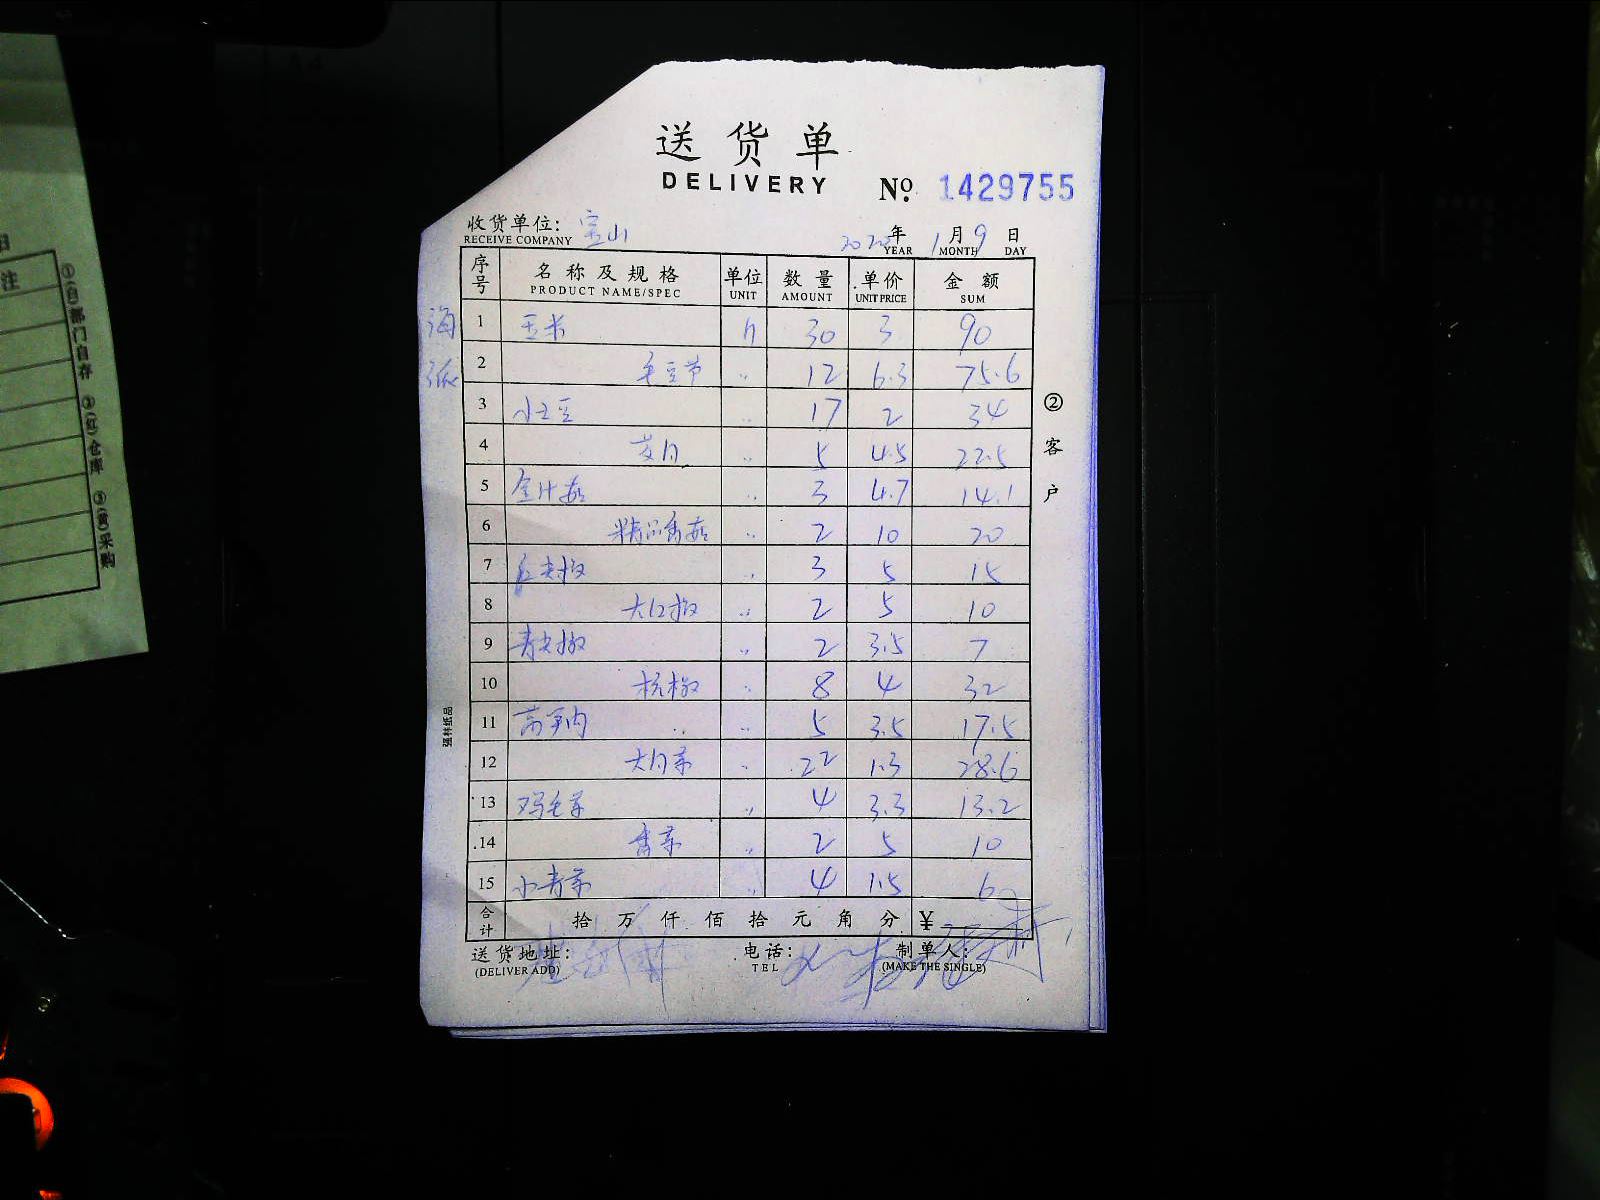 送货单
DELIVERY
No. 1429755
收货单位: 宝山
RECEIVE COMPANY
2020年 1月 9日
YEAR MONTH DAY
序号 名称及规格 单位 数量 单价 金额
PRODUCT NAME/SPEC UNIT AMOUNT UNIT PRICE SUM
海派
1 玉米 斤 30 3 90
2 毛豆节 〃 12 6.3 75.6
3 小土豆 〃 17 2 34
4 〃 5 4.5 22.5
5 金针菇 〃 3 4.7 14.1
6 精品香菇 〃 2 10 20
7 红尖椒 〃 3 5 15
8 大红椒 〃 2 5 10
9 青尖椒 〃 2 3.5 7
10 杭椒 〃 8 4 32
11 〃 5 3.5 17.5
12 大白菜 〃 22 1.3 28.6
13 鸡毛菜 〃 4 3.3 13.2
14 香菜 〃 2 5 10
15 小青菜 〃 4 1.5 6
合计 拾 万 仟 佰 拾 元 角 分 ¥
送货地址: 电话: 制单人:
(DELIVER ADD) TEL (MAKE THE SINGLE)
②客户
强林纸品
注
①(白)部门自存 ②(红)仓库 ③(黄)采购